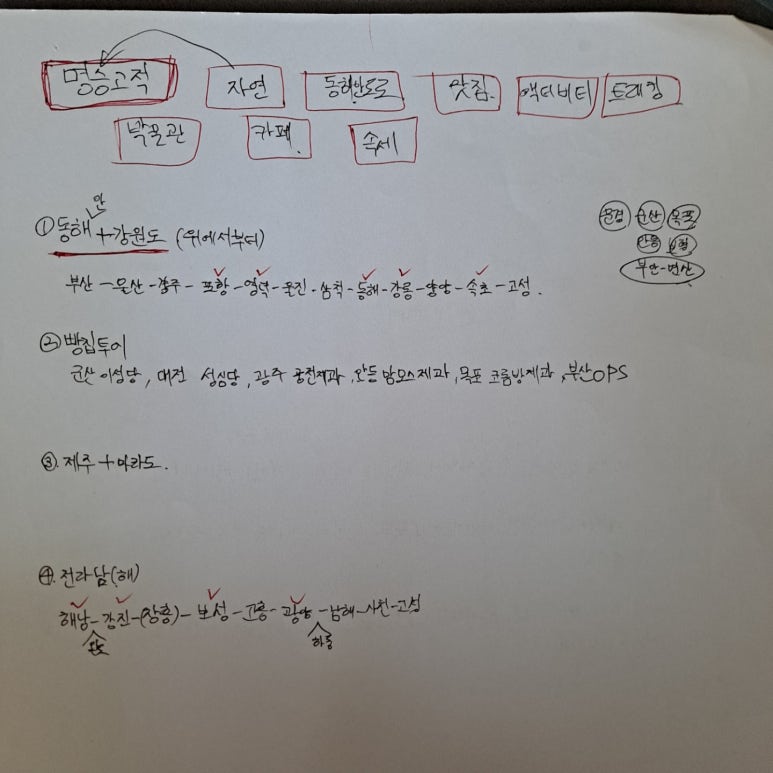 명승고적 자연 동해안도로 맛집. 액티비티 트래킹
박물관 카페. 속세
① 동해안+강원도 (위에서부터)
문경 군산 목포
안동
부안-변산
부산-울산-경주-포항-영덕-울진-삼척-동해-강릉-양양-속초-고성.
② 빵집투어
군산 이성당, 대전 성심당, 광주 궁전제과, 안동 맘모스제과, 목포 코롬방제과, 부산OPS
③ 제주+마라도.
④ 전라남(해)
해남-강진-(장흥)-보성-고흥-광양-남해-사천-고성
완도 하동